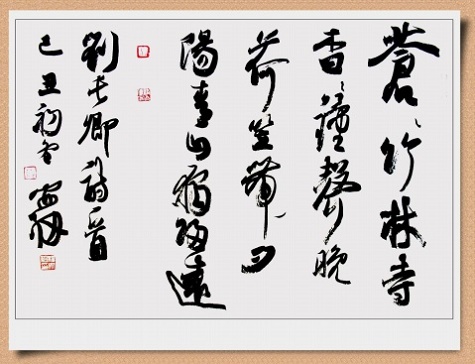 蒼〻竹林寺
杳〻鐘聲晚
荷笠帶夕
陽青山獨歸遠
劉長卿詩一首
己丑初